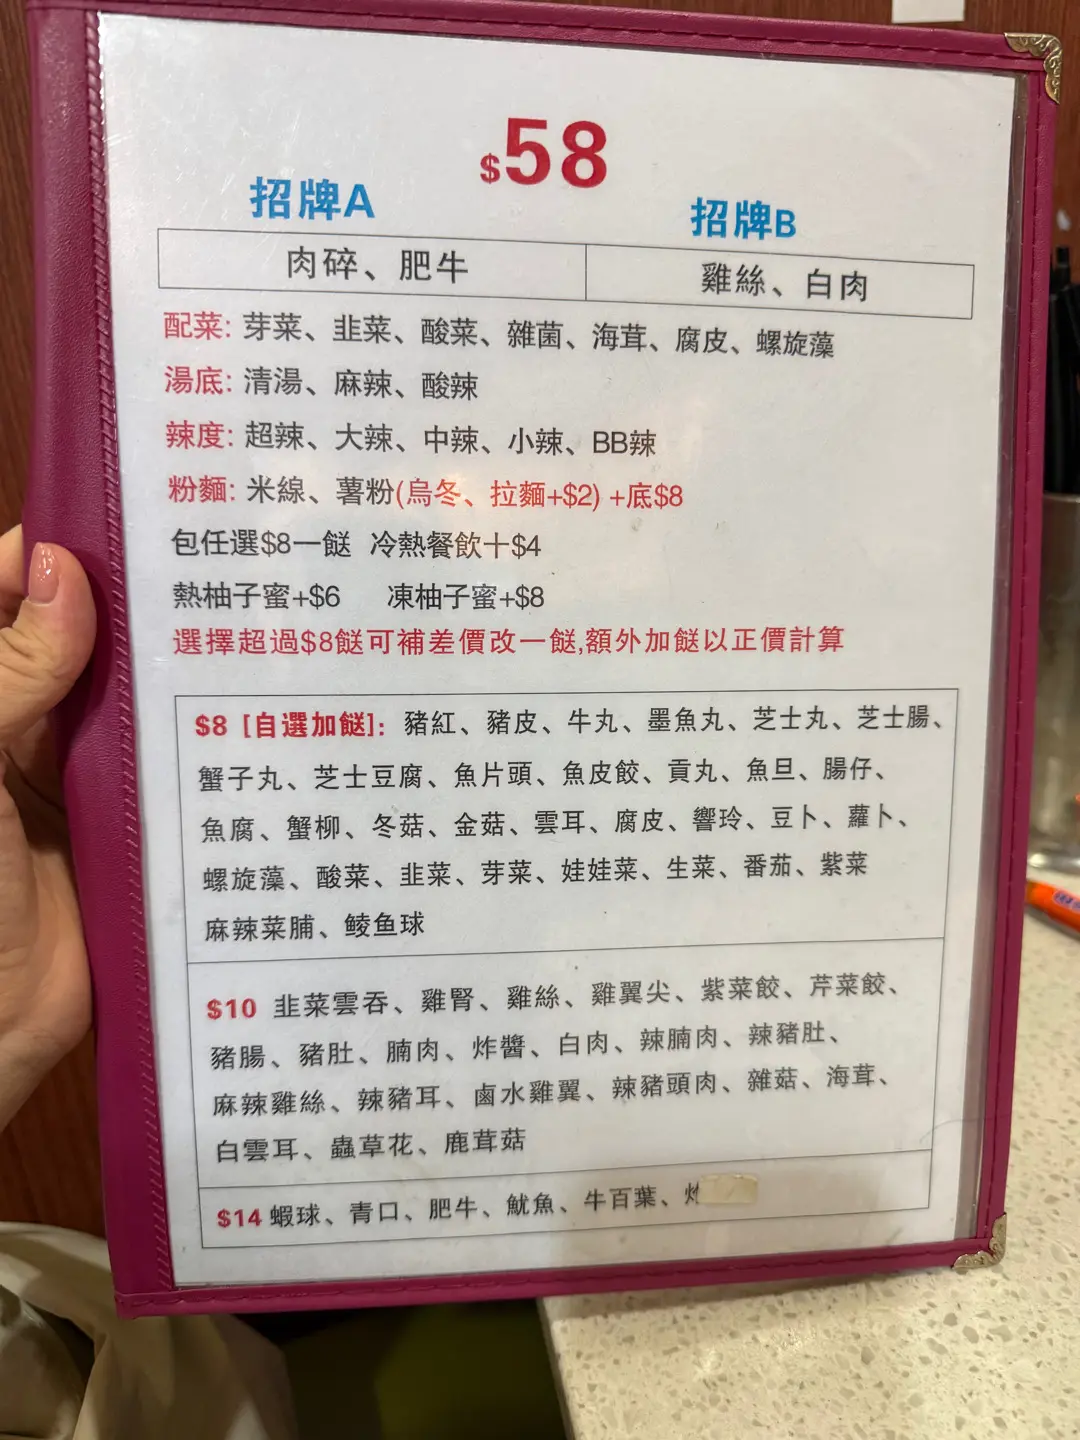 $58
招牌A
招牌B
肉碎、肥牛
雞絲、白肉
配菜: 芽菜、韭菜、酸菜、雜菌、海茸、腐皮、螺旋藻
湯底: 清湯、麻辣、酸辣
辣度: 超辣、大辣、中辣、小辣、BB辣
粉麵: 米線、薯粉(烏冬、拉麵+$2) +底$8
包任選$8一餸 冷熱餐飲十$4
熱柚子蜜+$6 凍柚子蜜+$8
選擇超過$8餸可補差價改一餸,額外加餸以正價計算
$8 [自選加餸]: 豬紅、豬皮、牛丸、墨魚丸、芝士丸、芝士腸、
蟹子丸、芝士豆腐、魚片頭、魚皮餃、貢丸、魚旦、腸仔、
魚腐、蟹柳、冬菇、金菇、雲耳、腐皮、響玲、豆卜、蘿卜、
螺旋藻、酸菜、韭菜、芽菜、娃娃菜、生菜、番茄、紫菜
麻辣菜脯、鲮鱼球
$10 韭菜雲吞、雞腎、雞絲、雞翼尖、紫菜餃、芹菜餃、
豬腸、豬肚、腩肉、炸醬、白肉、辣腩肉、辣豬肚、
麻辣雞絲、辣豬耳、鹵水雞翼、辣豬頭肉、雜菇、海茸、
白雲耳、蟲草花、鹿茸菇
$14 蝦球、青口、肥牛、魷魚、牛百葉、